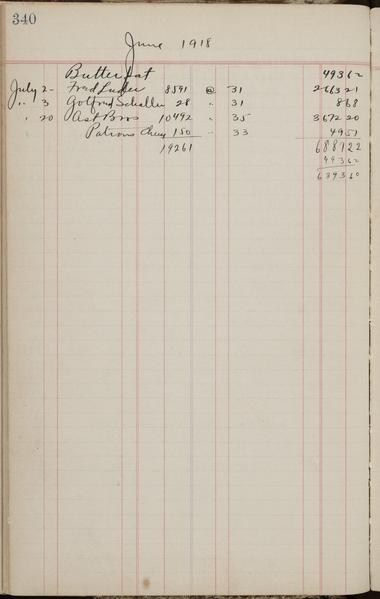 340
June 1918
Butter fat 493 62
July 2 - Fred Luder 8591 @ 31 2663 21
" 3 Golfred Schaller 28 " 31 8 68
" 20 Ast Bros 10492 " 35 3672 20
Patrons Chey 150 " 33 49 51
19261 6887 22
493 62
6393 60